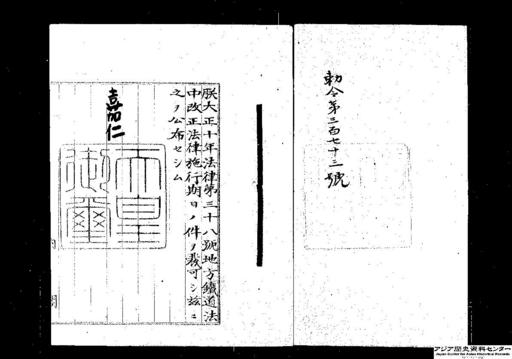 勅令第三百七十三號
朕大正十年法律第三十八號地方鐵道法
中改正法律施行期日ノ件ヲ裁可シ茲ニ
之ヲ公布セシム
嘉仁
天皇
御璽
アジア歴史資料センター
Japan Center for Asian Historical Records